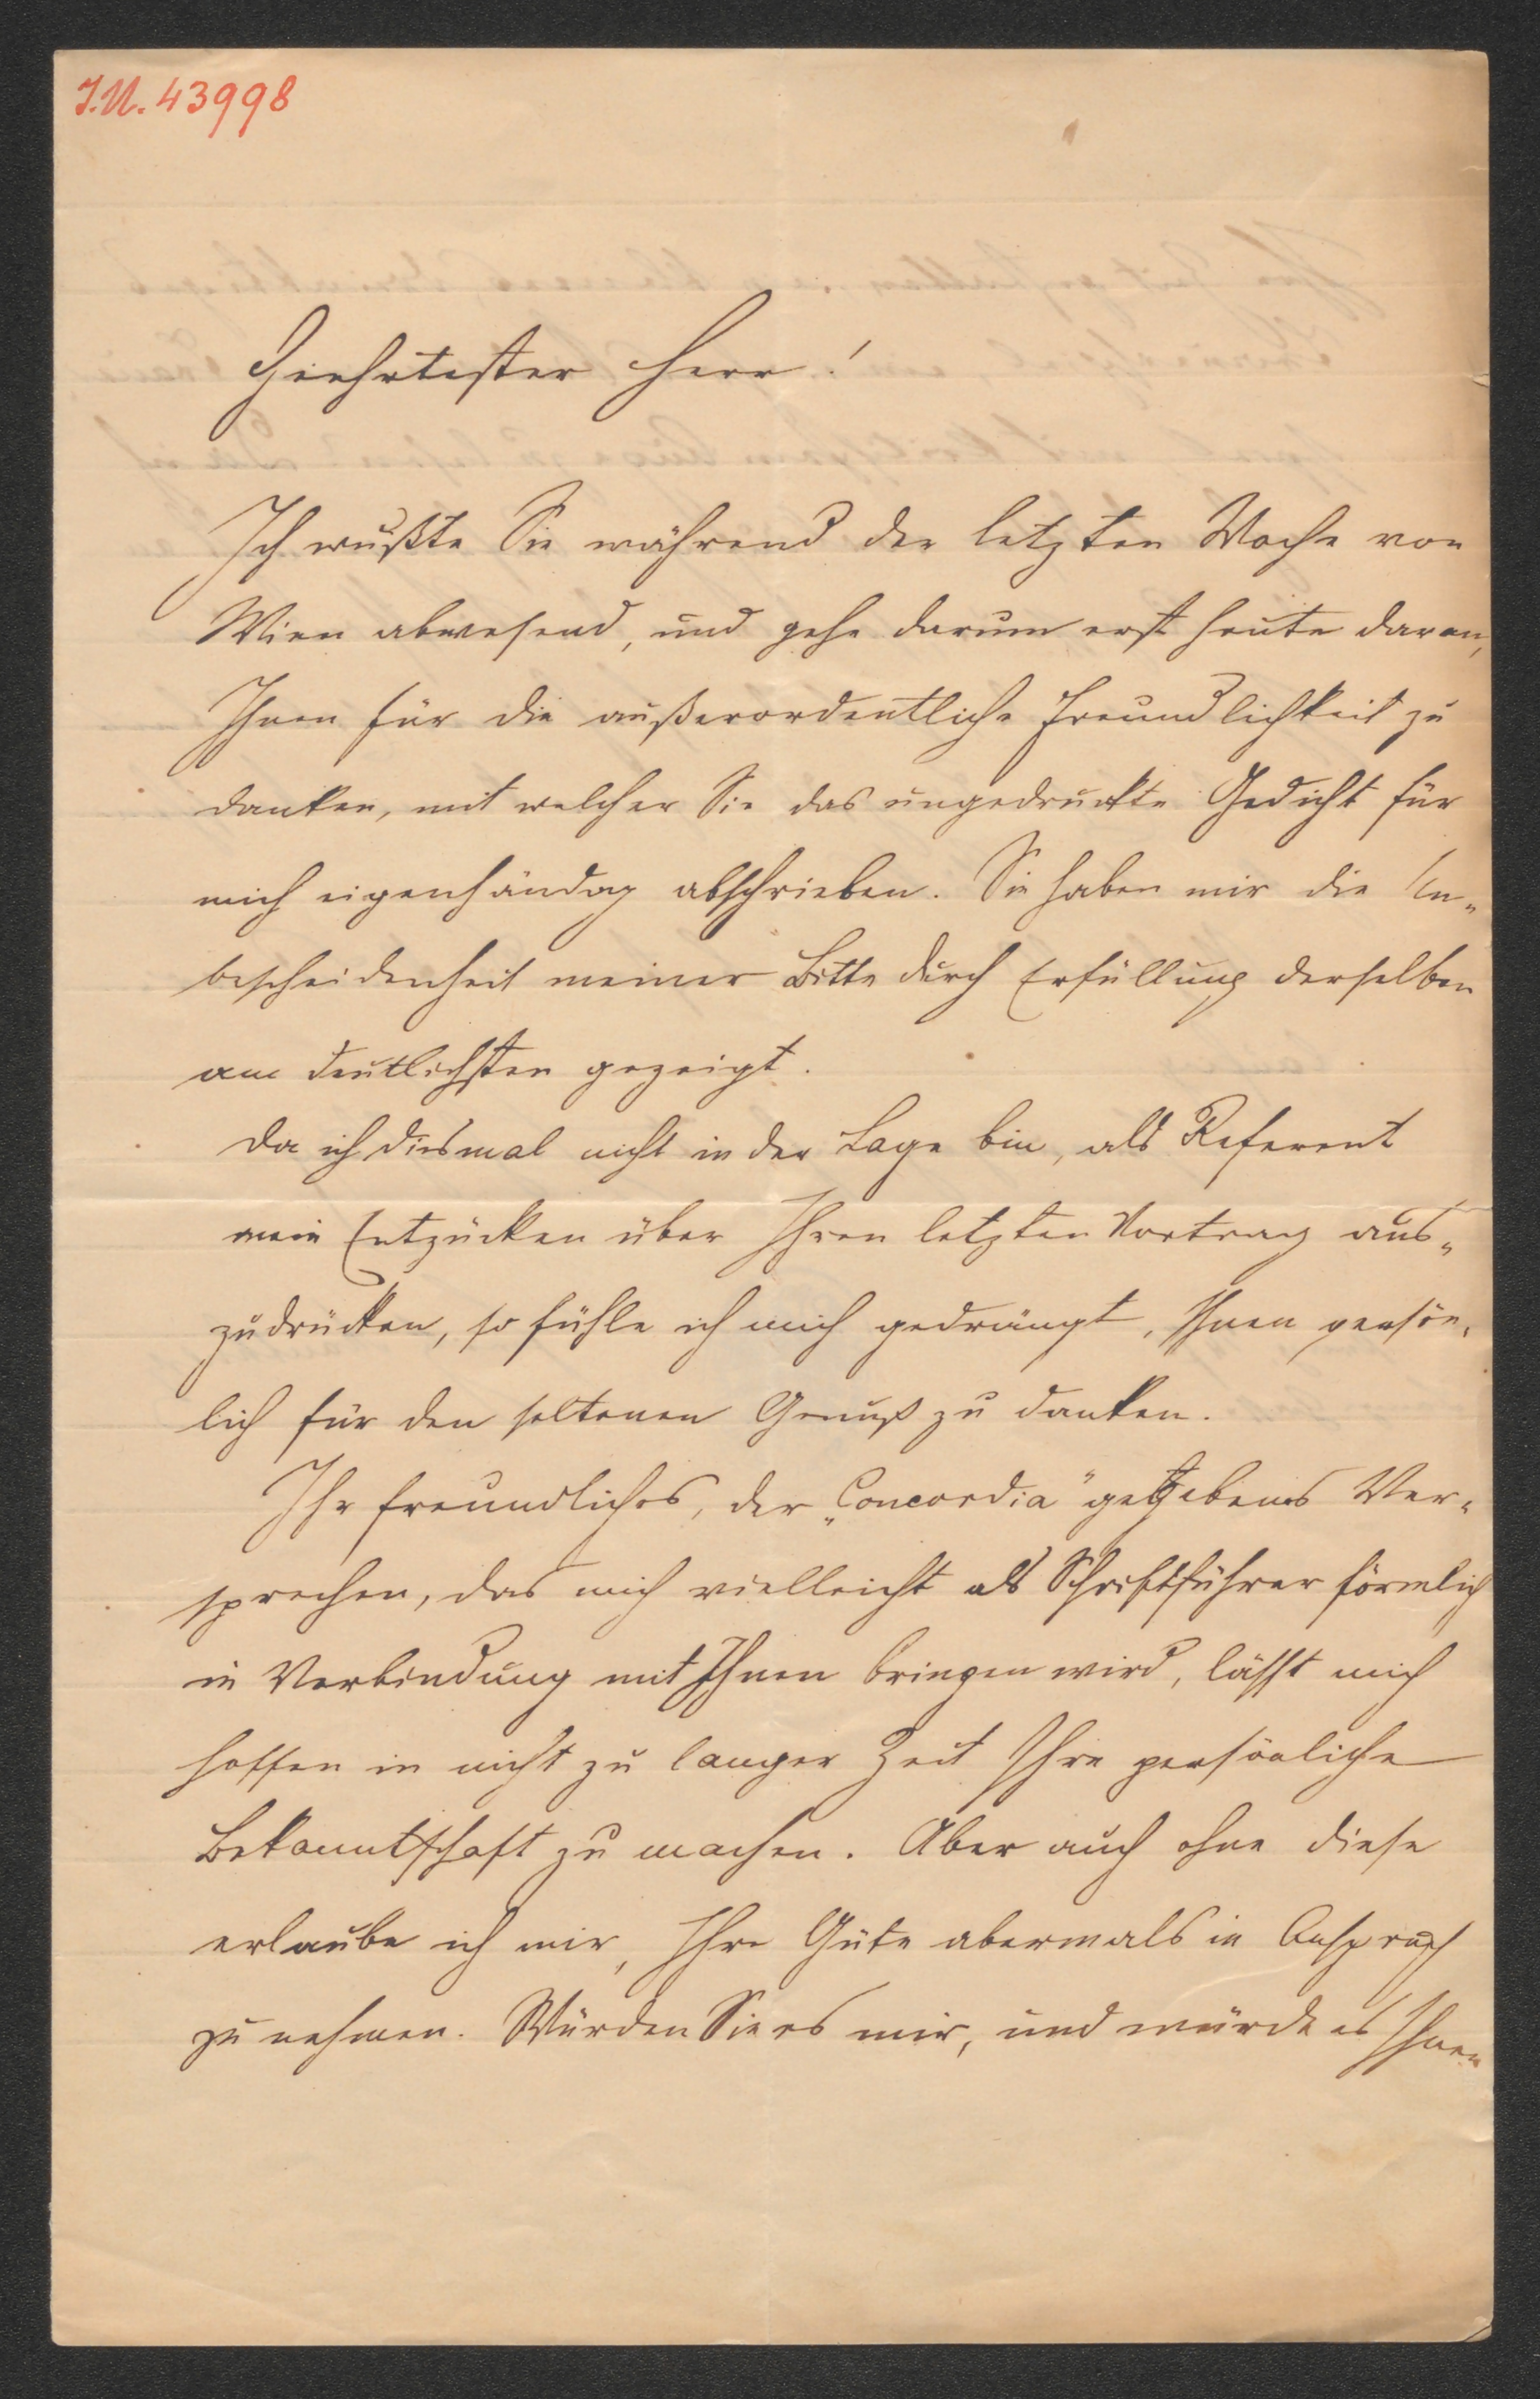 I.N. 43998
Geehrtester Herr!
Ich wußte Sie während der letzten Woche von
Wien abwesend, und gehe darum erst heute daran,
Ihnen für die außerordentliche Freundlichkeit zu
danken, mit welcher Sie das ungedruckte Gedicht für
mich eigenhändig abschrieben. Sie haben mir die Un-
bescheidenheit meiner Bitte durch Erfüllung derselben
am deutlichsten gezeigt.
Da ich diesmal nicht in der Lage bin, als Referent
mein Entzücken über Ihren letzten Vortrag aus-
zudrücken, so fühle ich mich gedrängt, Ihnen persön-
lich für den seltenen Genuß zu danken.
Ihr freundliches, der „Concordia" gegebenes Ver-
sprechen, das mich vielleicht als Schriftführer förmlich
in Verbindung mit Ihnen bringen wird, lässt mich
hoffen in nicht zu langer Zeit Ihre persönliche
Bekanntschaft zu machen. Aber auch ohne diese
erlaube ich mir, Ihre Güte abermals in Anspruch
zu nehmen. Würden Sie es mir, und würde es Ihnen